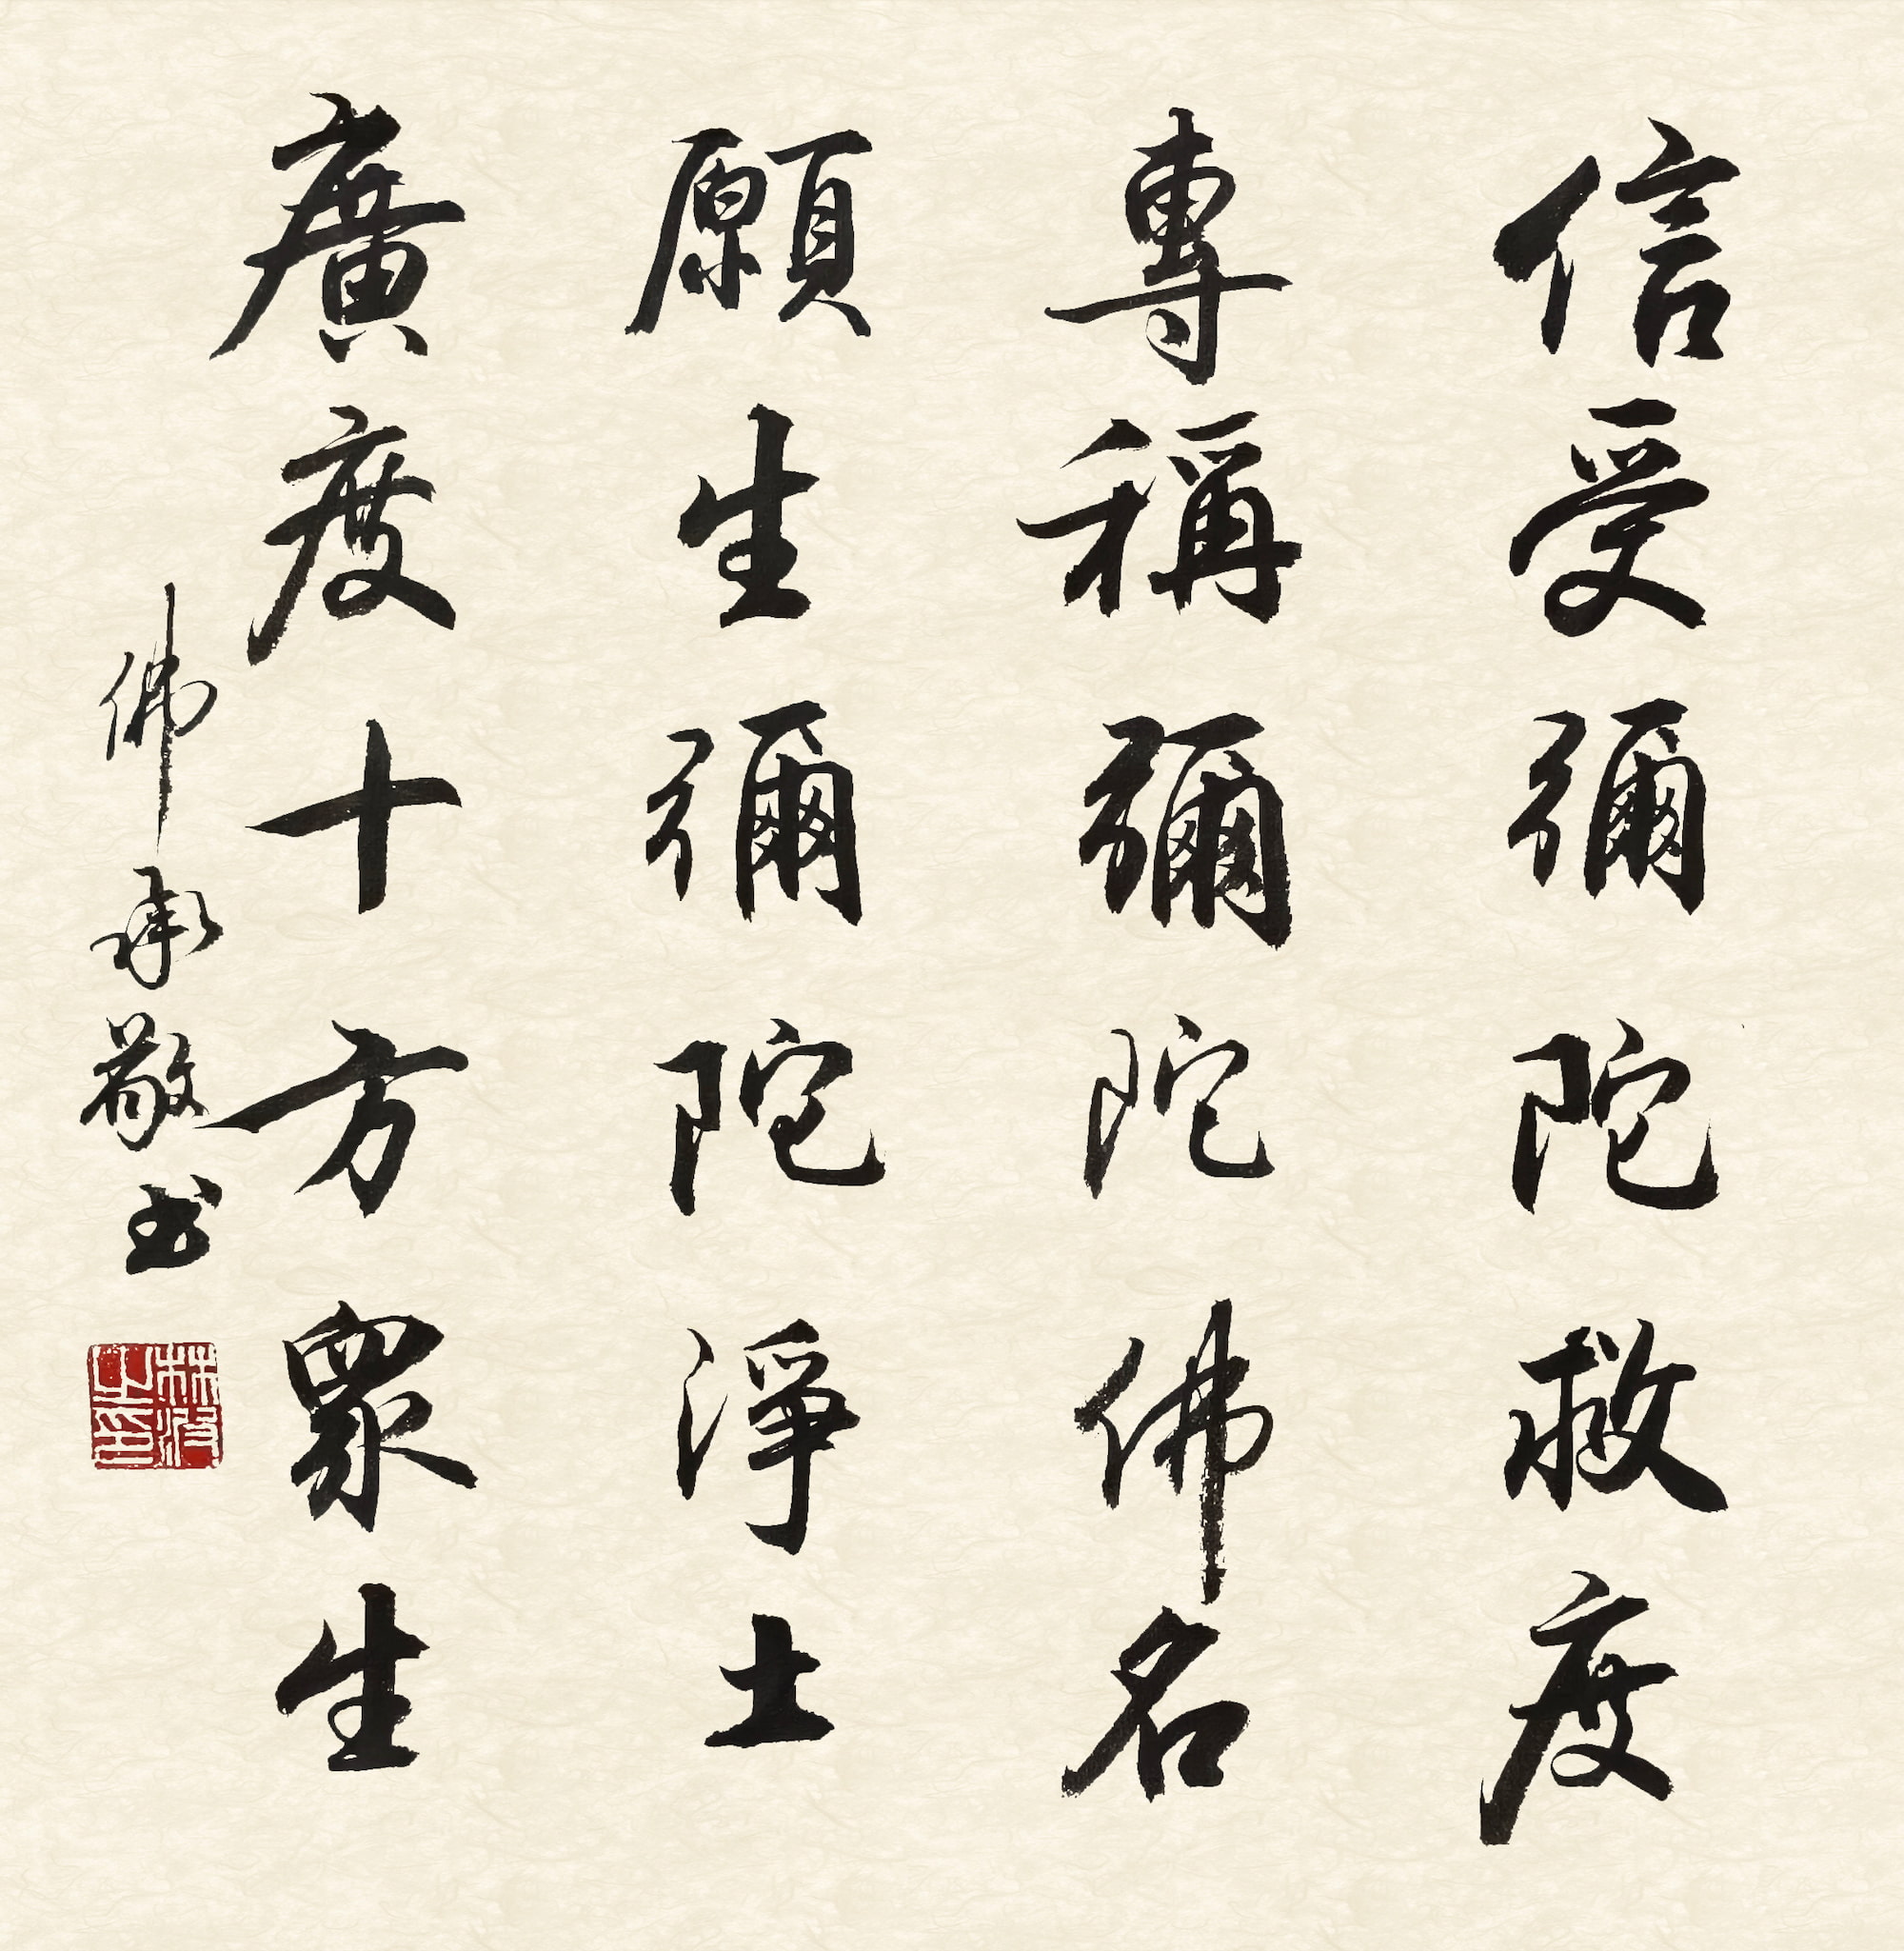 信受彌陀救度
專稱彌陀佛名
願生彌陀淨土
廣度十方眾生
佛承敬书